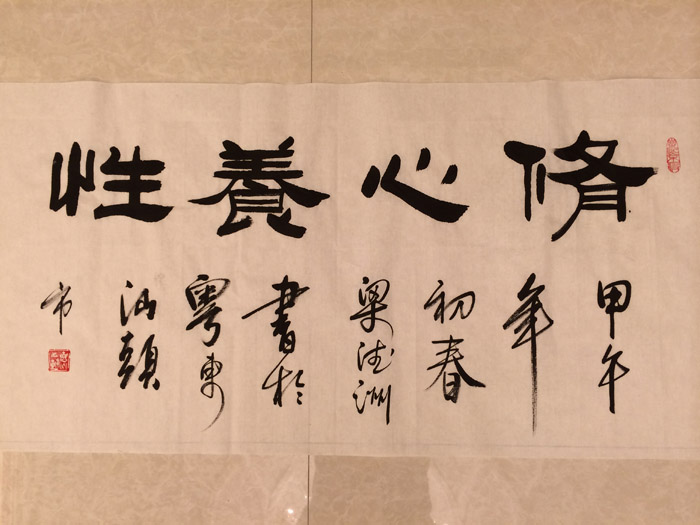 脩心養性
甲午
年
初春
梁德洲
書於
粵東
汕頭
市